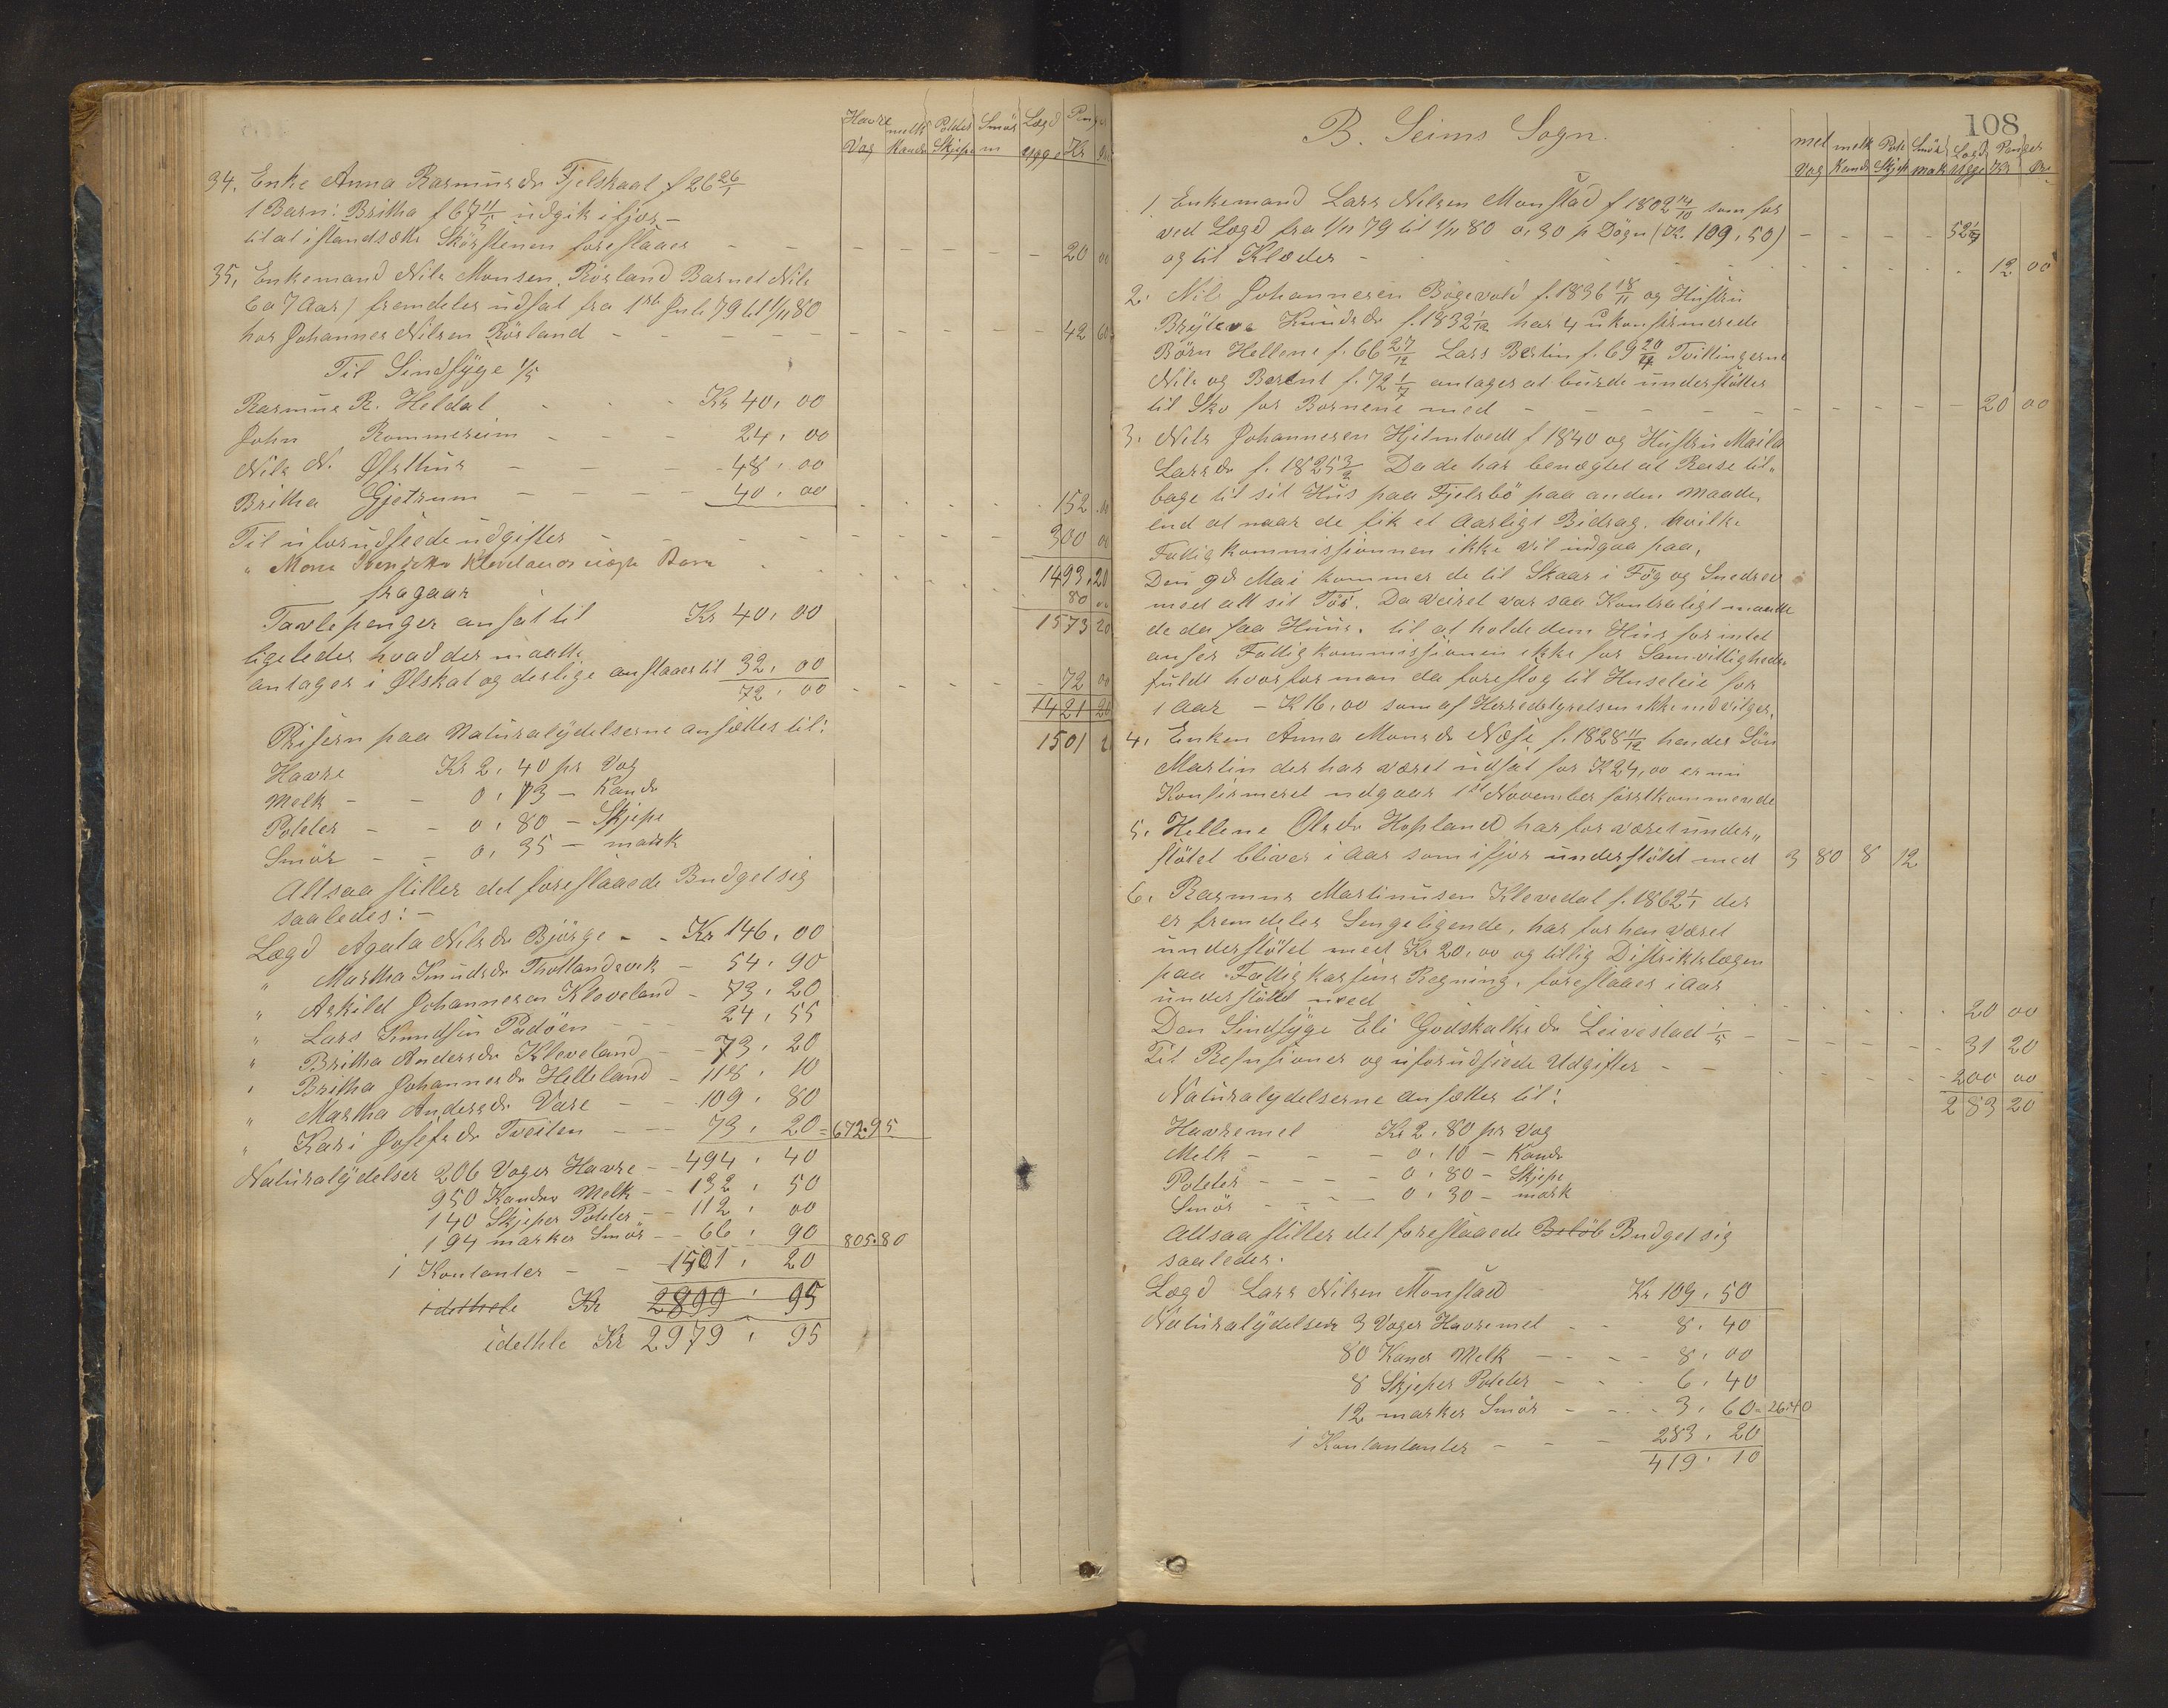 Havre melk Poteter Smör Lægd Penge
Vog Kander Skjeper m Kr
34. Enke Anna Rasmusdr Fjelskaal f 26 26/1
1 Barn: Britha f 67 11/11 udgik ifjor –
til at istandsætte Skorstenen foreslaaes – – – – – – – 20 00
35. Enkemand Nils Monsen Rösland Barnet Nils
6 a 7 Aar) fremdeles udsat fra 1ste Juli 79 til 1/11 80
hos Johannes Nilsen Rösland – – – – – – – – 42 60
Til Sindsyge 1/5
Rasmus R. Heldal – – – Kr 40,00
John Rommereim – – – 24,00
Nils N. Østhus – – – 48,00
Britha Gjetrum – – – – 40,00 152 00
Til uforudseede udgifter – – – – – – 300 00
" Mons Klevelands Barn 1493,20
fragaar 80 00
Tavlepenger ansat til Kr 40,00 1573 20
ligeledes hvad der maatte
antages i Ølskat og deslige anslaaes til 32,00 – – – – 72 00
72,00 1421 20
Prisern paa Naturalydelserne ansættes til: 1501 2
Havre Kr 2,40 pr Vog
Melk – – 0,13 – Kande
Poteter – – 0,80 – Skjepe
Smör – – 0,35 – mark
Altsaa stiller det foreslaaede Budget sig
saaledes: –
Lægd Agata Nilsdr Bjørge – – Kr 146,00
" Martha Knudsdr Thollandsvik – 54,90
" Askild Johannesen Kleveland – 73,20
" Lars Knudsen Padöen – – 24,55
" Britha Andersdr Kleveland – 73,20
" Britha Johannesdr Helleland – 118,10
" Martha Andersdr Vare – – 109,80
" Kari Josefsdr Tveiten – – 73,20 = 672,95
Naturalydelser 206 Voger Havre – – 494,40
950 Kander Melk – – 132,50
140 Skjeper Poteter – – 112,00
194 marker Smör – – 66,90 805.80
i Kontanter – – 1501,20
idethele Kr 2899,95
idethele Kr 2979,95
108
B. Seims Sogn.
mel melk Pote Smör Lægd Penger
Vog Kande Skjep mark Kr Øre
1. Enkemand Lars Nilsen Monstad f 1802 14/10 som før
ved Lægd fra 1/11 79 til 1/11 80 0,30 p Dögn (Kr. 109,50) – – – – 52
og til Klæder – – – – 12 00
2. Nils Johannesen Bögevold f. 1836 18/11 og Hustru
Knudsdr f. 1832 1/12 har 4 ukonfirmerede
Börn Hellene f. 66 27/12 Lars Bertin f. 69 20/11 Tvillingerne
Nils og Berent f. 72 1/7 antages at burde understöttes
til Sko for Bornene med – – – – – – – 20 00
3. Nils Johannesen Hjelmtvedt f 1840 og Hustru Maila
Larsdr f. 1825 3/2 Da de har benægtet at Reise til„
bage til sit Hus paa Fjelsbö paa anden Maade,
end at naar de fik et Aarligt Bidrag. hvilke
Fattigkommissionnen ikke vil indgaa paa,
Den 9d Mai kommer de til Skaar i Fög og Snedrev
med alt sit Töi. Da Veiret var saa Kontraligt maatte
de da faa Huus. til at holde dem Hus for intet
anser Fattigkommissionen ikke for Samvittigheds
fuldt hvorfor man da foreslog til Huseleie for
1 Aar – K 16,00 som af Herredstyrelsen ikke indvilges.
4. Enken Anna Monsdr Næse f. 1828 11/12 hendes Sön
Martin der har været udsat for K 24,00 er nu
Konfirmeret udgaar 1st November förstkommende
5. Hellene Olsdr Hopland har för været under„
stötet bliver i Aar som ifjor understötet med 3 80 8 12
6. Rasmus Martinusen Klevedal f. 1862 1/1 der
er fremdeles Sengeligende, har for hen været
understötet med Kr 20,00 og tillig Distriktslægen
paa Fattigkassens Regning. foreslaaes i Aar
understöttet med – – – – – 20 00
Den Sindsyge Eli Godskalksdr Leivestad 1/5 – – – – 31 20
Til Refusioner og uforudseede Udgifter – – – – – 200 00
Naturalydelserne ansættes til: 283 20
Havremel Kr 2,80 pr Vog
Melk – – – 0,10 – Kande
Poteter – – – – 0,80 – Skjepe
Smör – – – 0,30 – mark
Altsaa stiller det foreslaaede Belöb Budget sig
saaledes.
Lægd Lars Nilsen Monstad Kr 109,50
Naturalydelser 3 Voger Havremel – – 8,40
80 Kaner Melk – – – – 8,00
8 Skjeper Poteter – – – 6,40
12 marker Smör – – – 3,60 = 26.40
i Kontantanter – – – 283,20
419,10